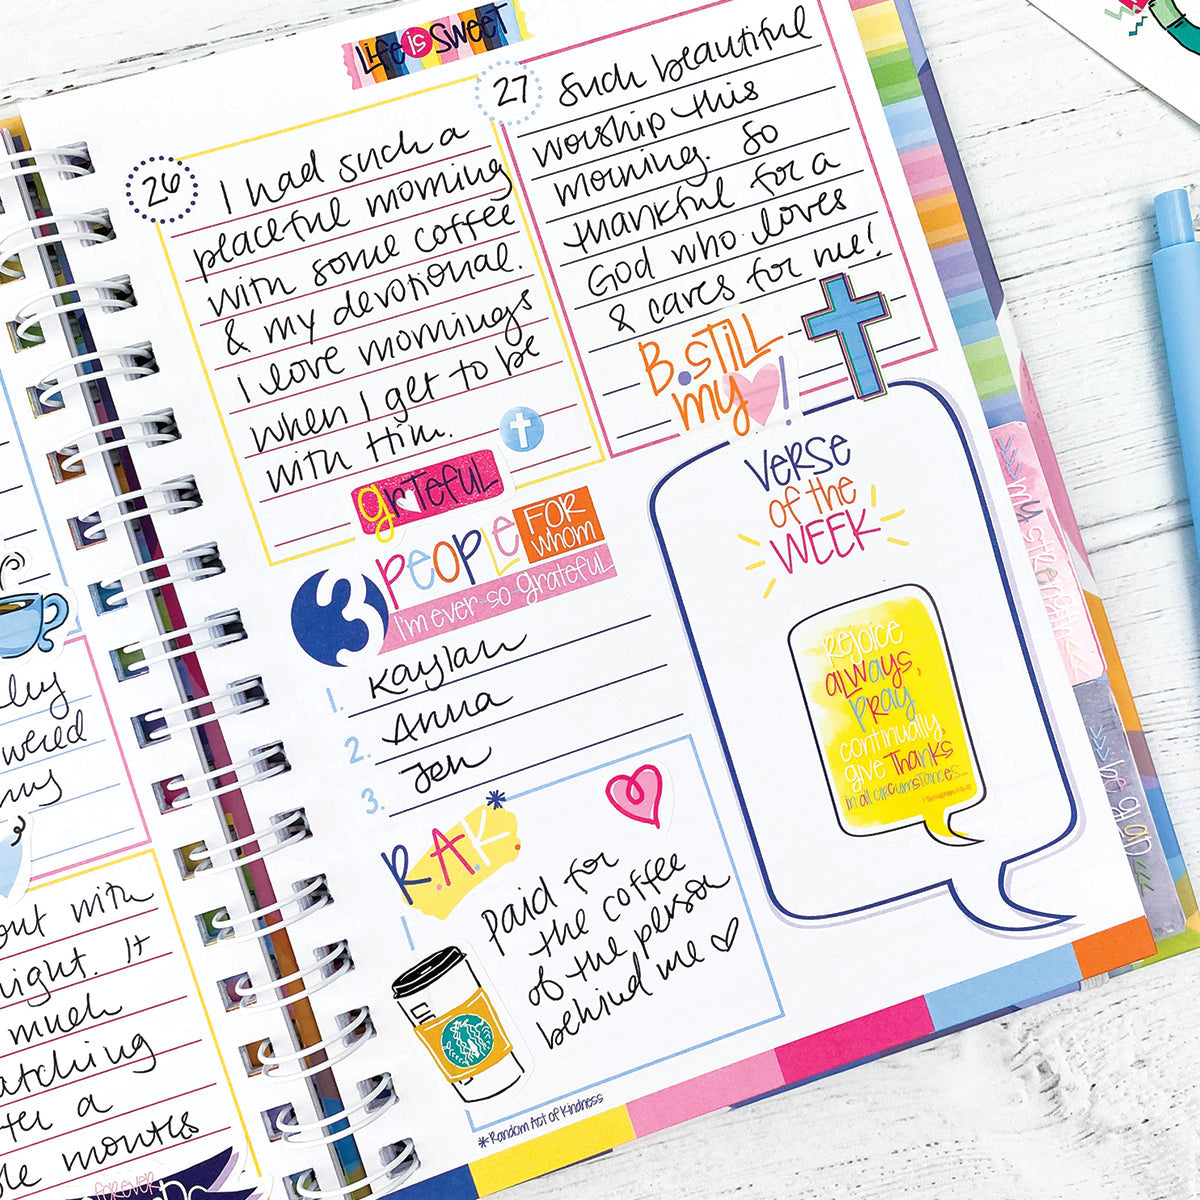 Life is Sweet
26
I had such a
peaceful morning
with some coffee
& my devotional.
I love mornings
when I get to be
with Him.
grateful
27
Such beautiful
worship this
morning. So
thankful for a
God who loves
& cares for me!
B.STILL
my !
3
PEOPLE FOR whom
I'm ever so grateful
1. Kaylan
2. Anna
3. Jen
R.A.K.*
Paid for
the coffee
of the person
behind me
*Random Act of Kindness
VERSE
of the
WEEK
Rejoice
always,
Pray
continually
give Thanks
in all circumstances...
my strength
out with
night. It
much
atching
ter a
months
FOREVER